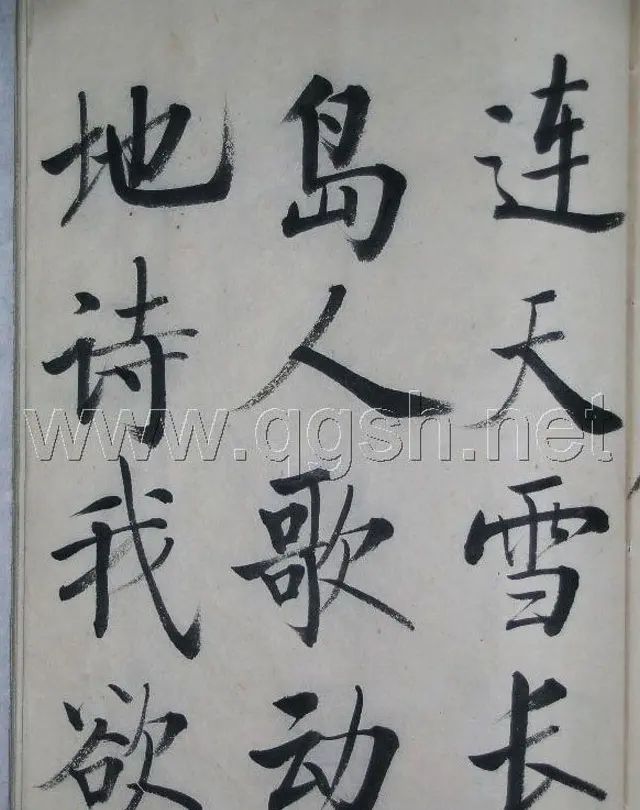 连天雪长
岛人歌动
地诗我欲
www.qgsh.net